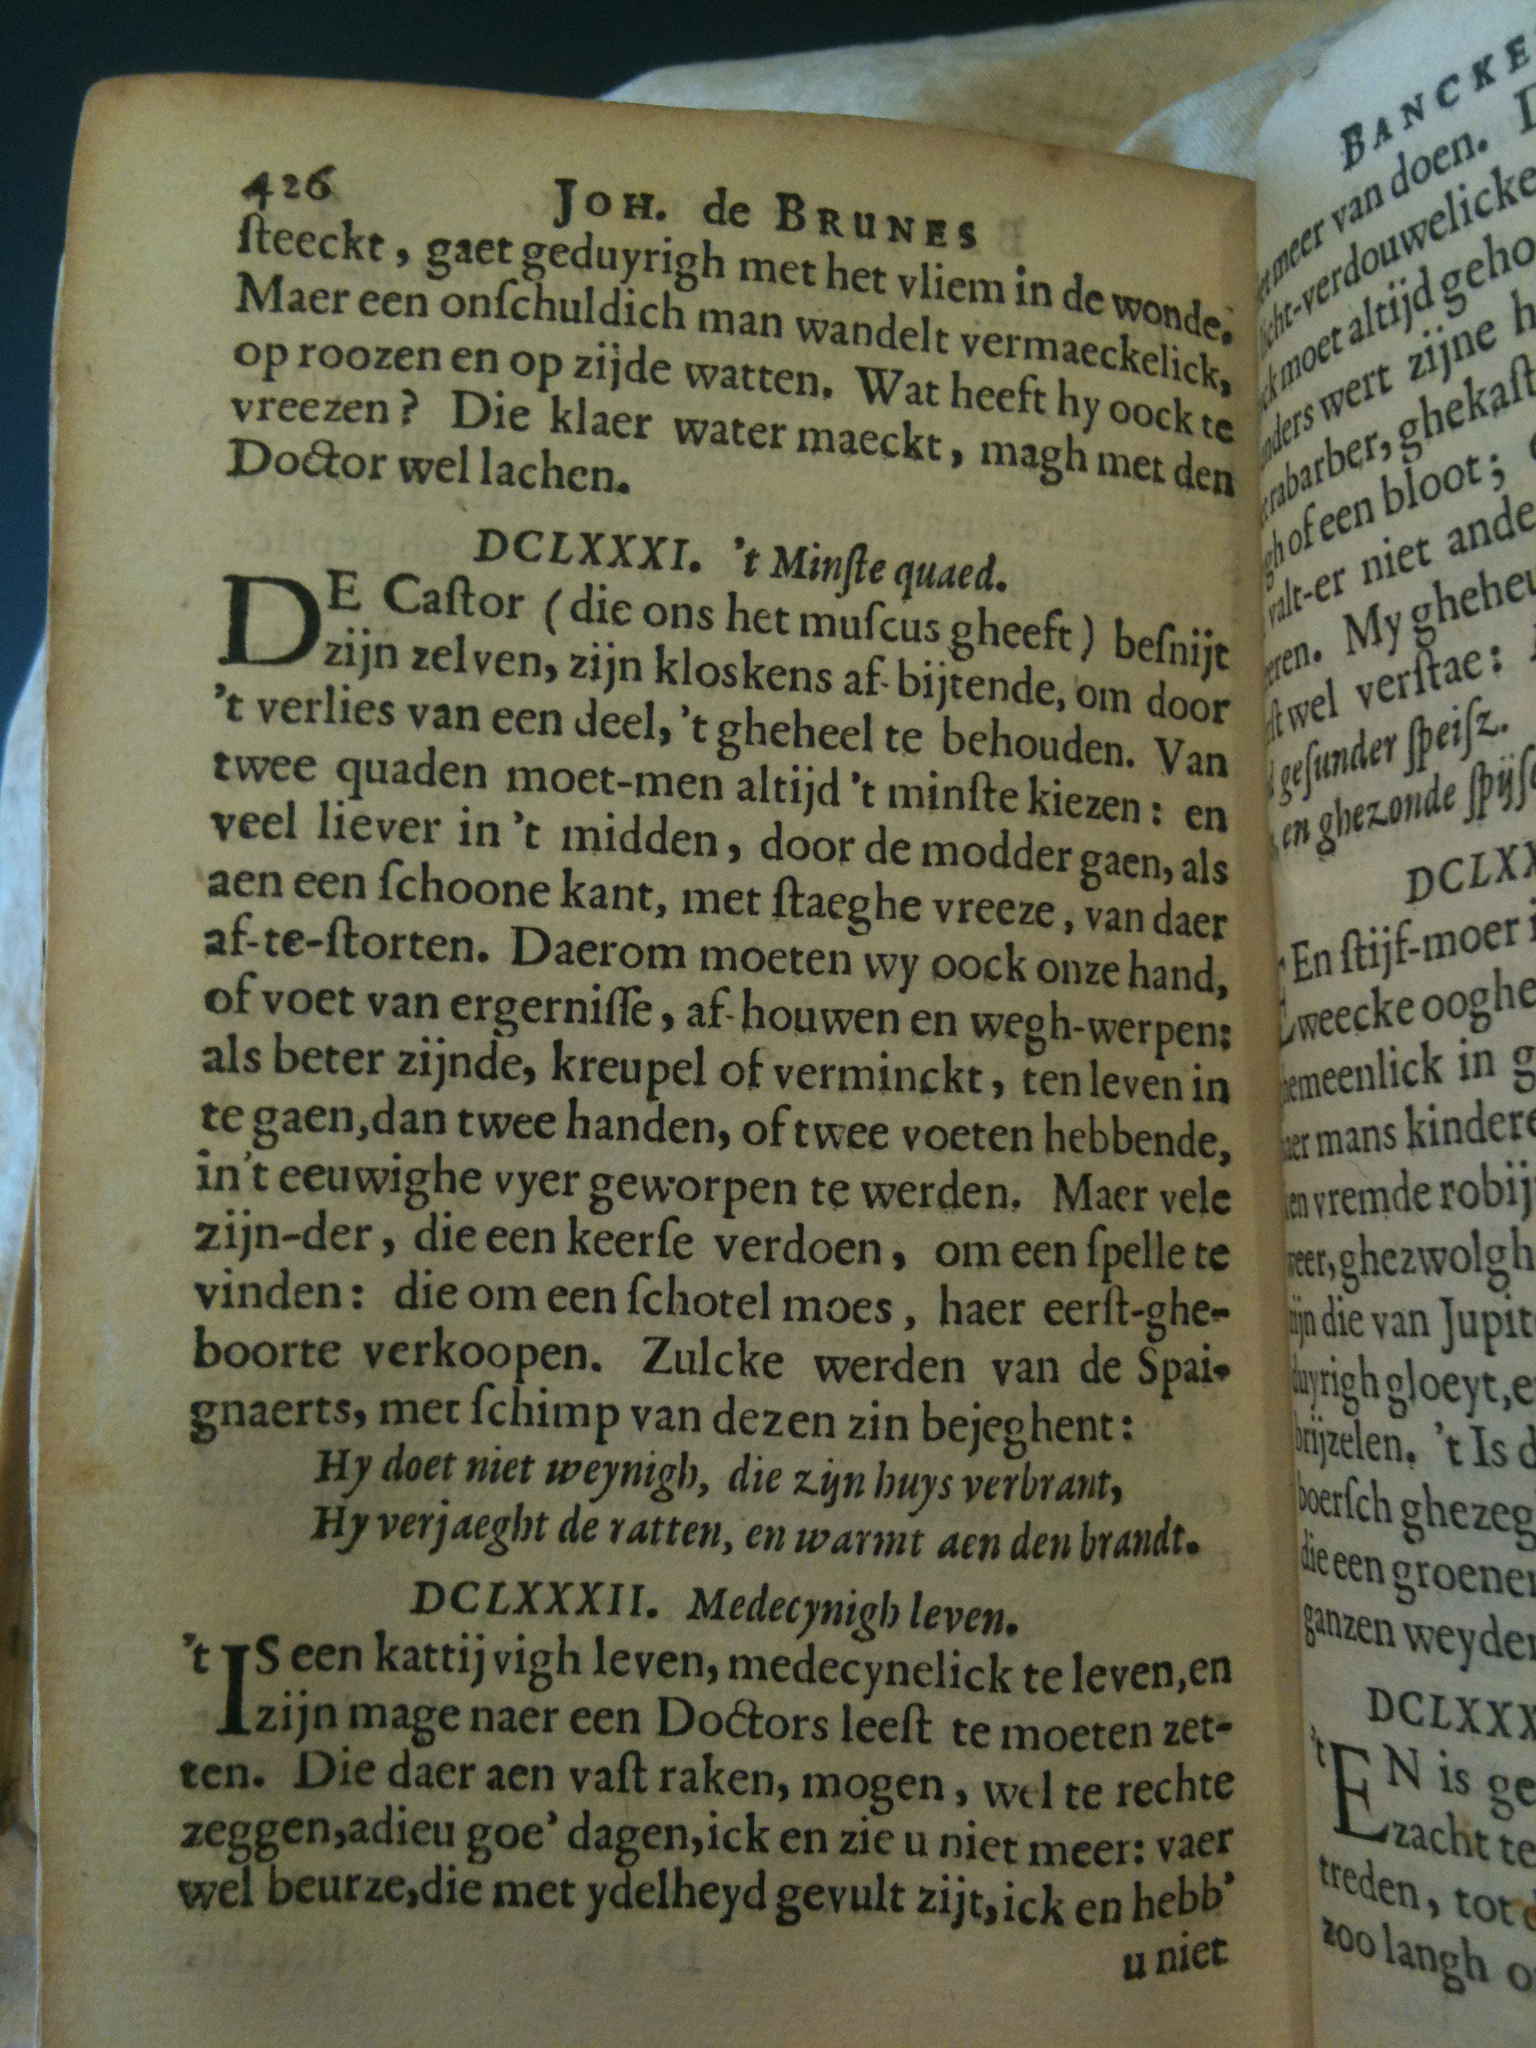 426
JOH. de BRUNES
ſteeckt, gaet geduyrigh met het vliem in de wonde.
Maer een onſchuldich man wandelt vermaeckelick,
op roozen en op zijde watten. Wat heeft hy oock te
vreezen? Die klaer water maeckt, magh met den
Doctor wel lachen.
DCLXXXI. 't Minſte quaed.
DE Caſtor (die ons het muſcus gheeft) beſnijt
zijn zelven, zijn kloskens af-bijtende, om door
't verlies van een deel, 't gheheel te behouden. Van
twee quaden moet-men altijd 't minſte kiezen: en
veel liever in 't midden, door de modder gaen, als
aen een ſchoone kant, met ſtaeghe vreeze, van daer
af-te-ſtorten. Daerom moeten wy oock onze hand,
of voet van ergerniſſe, af-houwen en wegh-werpen:
als beter zijnde, kreupel of verminckt, ten leven in
te gaen, dan twee handen, of twee voeten hebbende,
in't eeuwighe vyer geworpen te werden. Maer vele
zijn-der, die een keerſe verdoen, om een ſpelle te
vinden: die om een ſchotel moes, haer eerſt-ghe-
boorte verkoopen. Zulcke werden van de Spai-
gnaerts, met ſchimp van dezen zin bejeghent:
Hy doet niet weynigh, die zijn huys verbrant,
Hy verjaeght de ratten, en warmt aen den brandt.
DCLXXXII. Medecynigh leven.
't IS een kattijvigh leven, medecynelick te leven, en
zijn mage naer een Doctors leeſt te moeten zet-
ten. Die daer aen vaſt raken, mogen, wel te rechte
zeggen, adieu goe' dagen, ick en zie u niet meer: vaer
wel beurze, die met ydelheyd gevult zijt, ick en hebb'
u niet
BANCKE
meer van doen.
cht-verdouwelicke
moet altijd geho
nders wert zijne h
rabarber, ghekaſt
gh of een bloot;
valt-er niet ande
eren. My gheheu
wel verſtae:
geſunder ſpeiſz.
en ghezonde ſpijſe
DCLXX
En ſtijf-moer i
weecke ooghe
emeenlick in g
er mans kindere
en vremde robij
eer, ghezwolgh
zijn die van Jupit
duyrigh gloeyt, e
brijzelen. 't Is d
boerſch ghezeg
die een groene
ganzen weyde
DCLXXX
't EN is ge
zacht te
treden, tot
zoo langh o